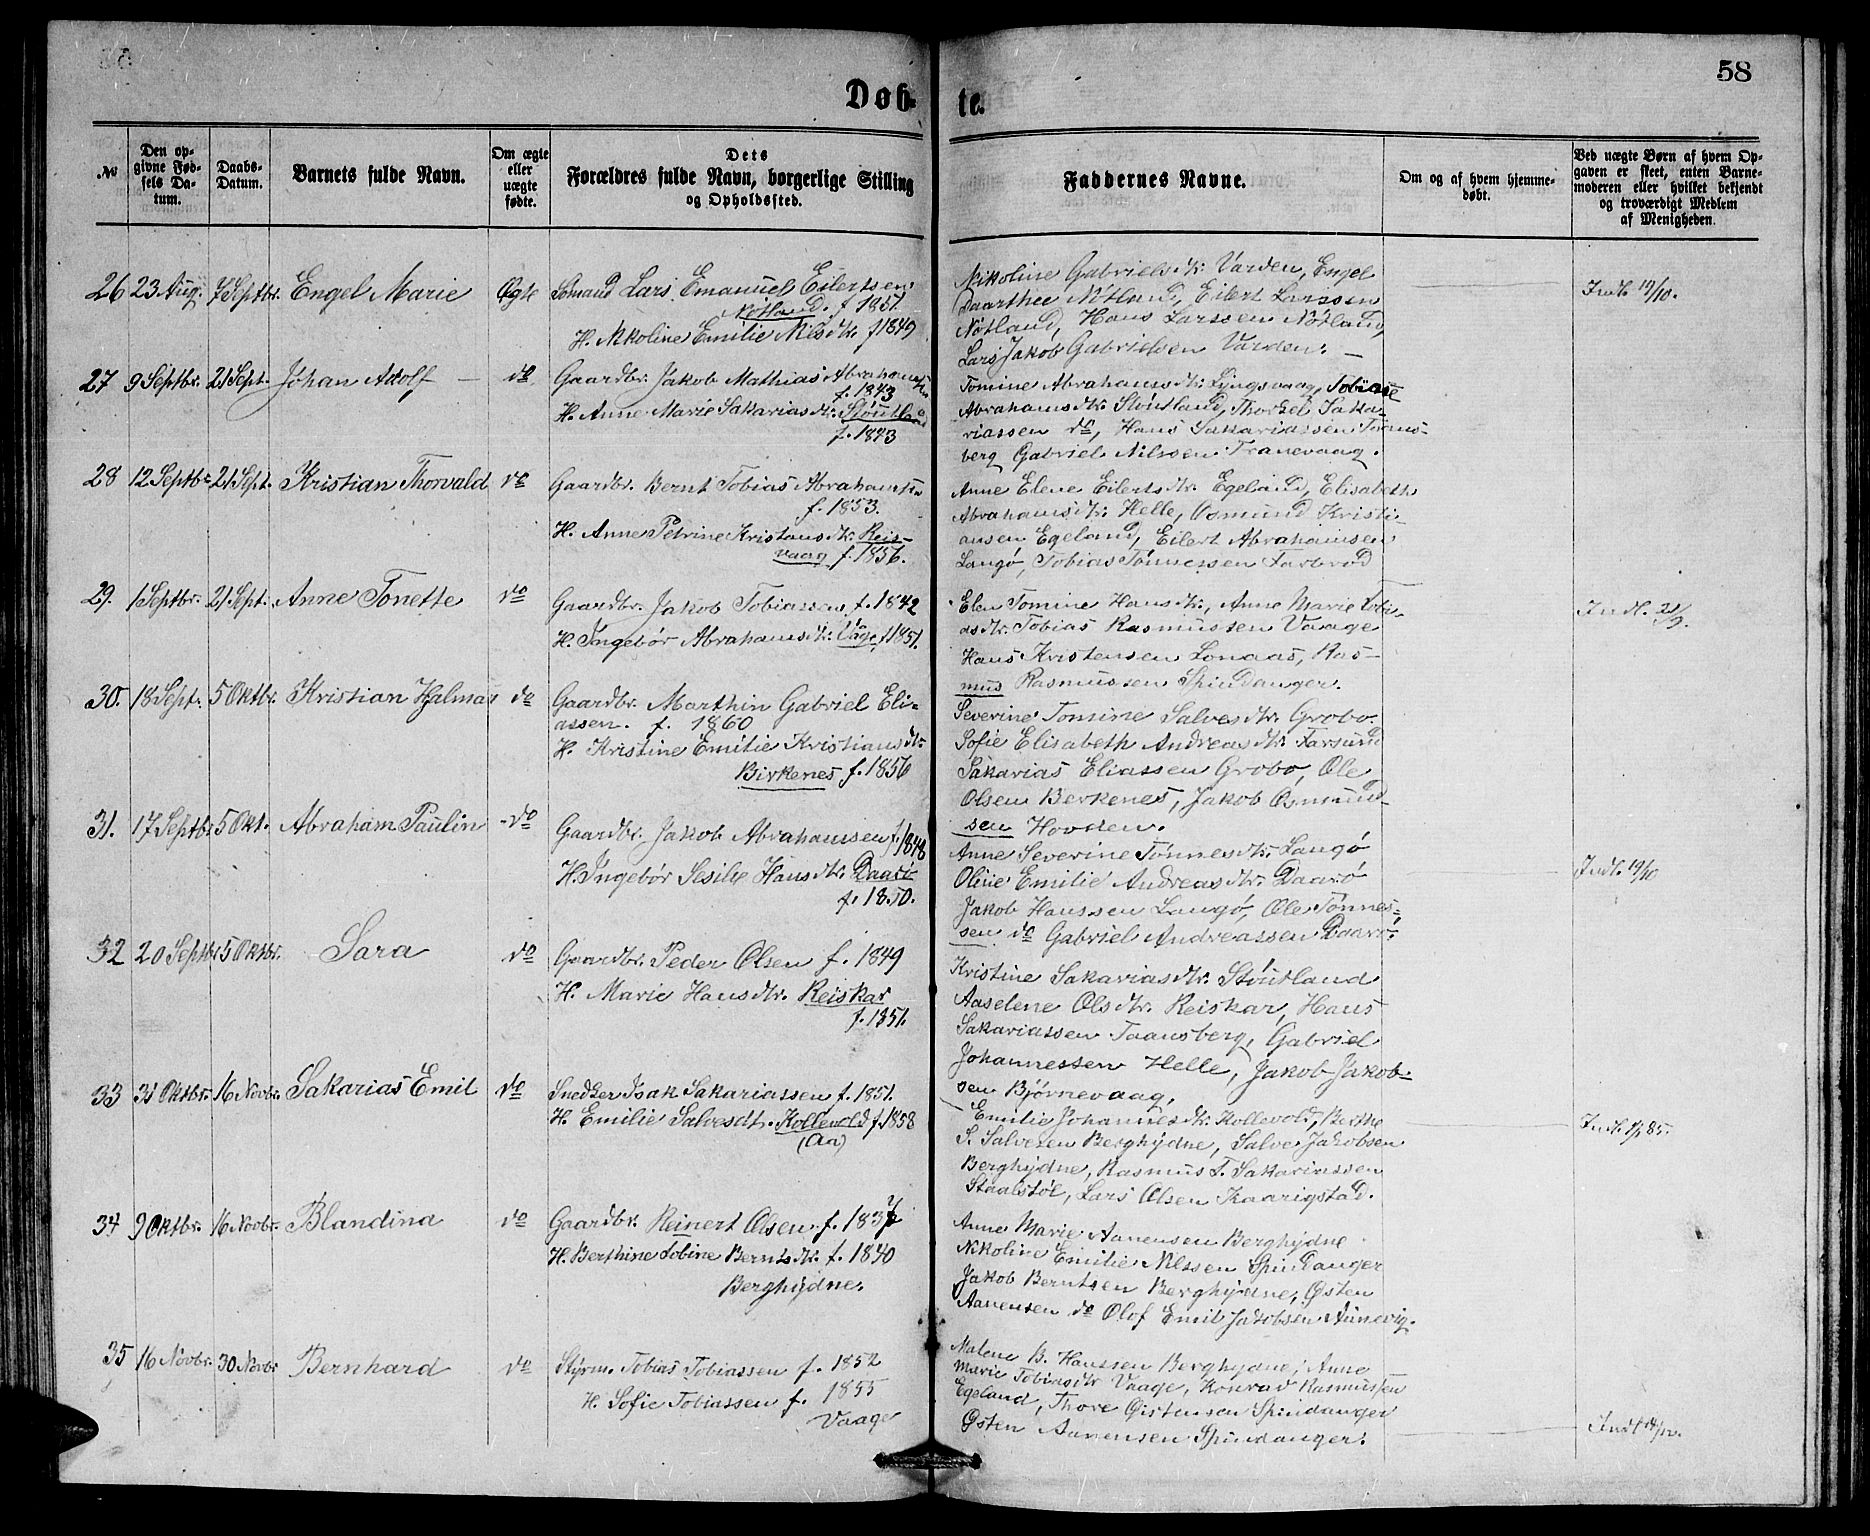 58
Døb-
te.
No
Den op-
givne Fød-
sels Da-
tum.
Daabs-
Datum.
Barnets fulde Navn.
Om ægte
eller
uægte
fødte.
Dets
Forældres fulde Navn, borgerlige Stilling
og Opholdssted.
Faddernes Navne.
Om og af hvem hjemme-
døbt.
Ved uægte Børn af hvem Op-
gaven er skeet, enten Barne-
moderen eller hvilket bekjendt
og troværdigt Medlem
af Menigheden.
26 23 Aug. 7 Septbr. Engel Marie Ægte Sømand Lars Emanuel Eilertsen
Nötland. f. 1851.
H. Nikoline Emilie Nilsdtr. f 1849
Nikoline Gabrielsdtr. Varden, Engel
Daarthee Nötland, Eilert Larssen
Nötland, Hans Larssen Nötland,
Lars Jakob Gabrielsen Varden. —
Indl. 19/10.
27 9 Septbr. 21 Sept. Johan Adolf — do Gaardbr. Jakob Mathias Abrahamsen
f. 1843
H. Anne Marie Sakariasdtr. Stöutland
f. 1843
Tomine Abrahamsdtr. Lyngsvaag, Tobine
Abrahamsdtr. Stöutland, Thorkel Saka-
riassen do, Hans Sakariassen Taans-
berg Gabriel Nilssen Tranevaag.
28 12 Septbr. 21 Sept. Kristian Thorvald do Gaardbr. Bernt Tobias Abrahamsen
f. 1853.
H. Anne Petrine Kristansdtr. Reis-
vaag f. 1856.
Anne Elene Eilertsdtr. Egeland, Elisabeth
Abrahamsdtr. Helle, Osmund Kristi-
ansen Egeland, Eilert Abrahamsen
Langö, Tobias Tönnessen Farbrod
29. 1 Septbr. 21. Sept. Anne Tonette do Gaardbr. Jakob Tobiassen f. 1842
H. Ingebör Abrahamsdtr. Våge f. 1851.
Elen Tomine Hansdtr., Anne Marie Tobi-
asdtr. Tobias Rasmussen Vaage
Hans Kristensen Lonaas, Ras-
mus Rasmussen Spindanger.
Indl. 21/9.
30. 18 Sept. 5 Oktbr. Kristian Hjalmar do Gaardbr. Marthin Gabriel Eli-
assen. f. 1860
H. Kristine Emilie Kristiansdtr.
Birkenes f. 1856
Severine Tomine Salvesdtr. Grobo.
Sofie Elisabeth Andreasdtr. Farsund
Sakarias Eliassen Grobo, Ole
Olsen Berkenes, Jakob Osmund-
sen Hovden.
31. 17 Septbr 5 Okt. Abraham Paulin do Gaardbr. Jakob Abrahamsen f. 1848
H. Ingebör Sesilie Hansdtr. Daarö
f. 1850.
Anne Severine Tönnesdtr. Langö
Oline Emilie Andreasdtr. Daarö
Jakob Hanssen Langö, Ole Tönnes-
sen do Gabriel Andreassen Daarö.
Indl. 19/10
32 20 Septbr 5 Oktbr. Sara do Gaardbr. Peder Olsen f. 1849
H. Marie Hansdtr. Reiskar
f. 1851.
Kristine Sakariasdtr. Stöutland
Aaselene Olsdtr. Reiskar, Hans
Sakariassen Taansberg, Gabriel
Johannessen Helle, Jakob Jakob-
sen Bjørnevaag,
33 31 Oktbr. 16 Novbr. Sakarias Emil do Snedker Isak Sakariassen f. 1851.
H. Emilie Salvesdt. Kollevold f. 1858
(Aa)
Emilie Johannesdtr. Kollevold, Berthe
S. Salvesen Berghydne, Salve Jakobsen
Berghydne, Rasmus T. Sakariassen
Staalstöl, Lars Olsen Kaarigstad.
Indl. 1/1 85.
34 9 Oktbr. 16 Novbr. Blandina do Gaardbr. Reinert Olsen f. 1837
H. Berthine Tobine Berntsdtr. f. 1840
Berghydne.
Anne Marie Aanensen Berghydne
Nikoline Emilie Nilssen Spindanger
Jakob Berntsen Berghydne, Østen
Aanensen do Olof Emil Jakobsen Aunevig.
35 16 Novbr. 30 Novbr Bernhard do Styrm. Tobias Tobiassen f. 1852
H. Sofie Tobiassen f. 1855
Vaage
Malene B. Hanssen Berghydne, Anne
Marie Tobiasdtr Vaage, Konrad Rasmussen
Egeland, Thore Øistensen Spindanger
Østen Aanensen Spindanger.
Indl 14/12.